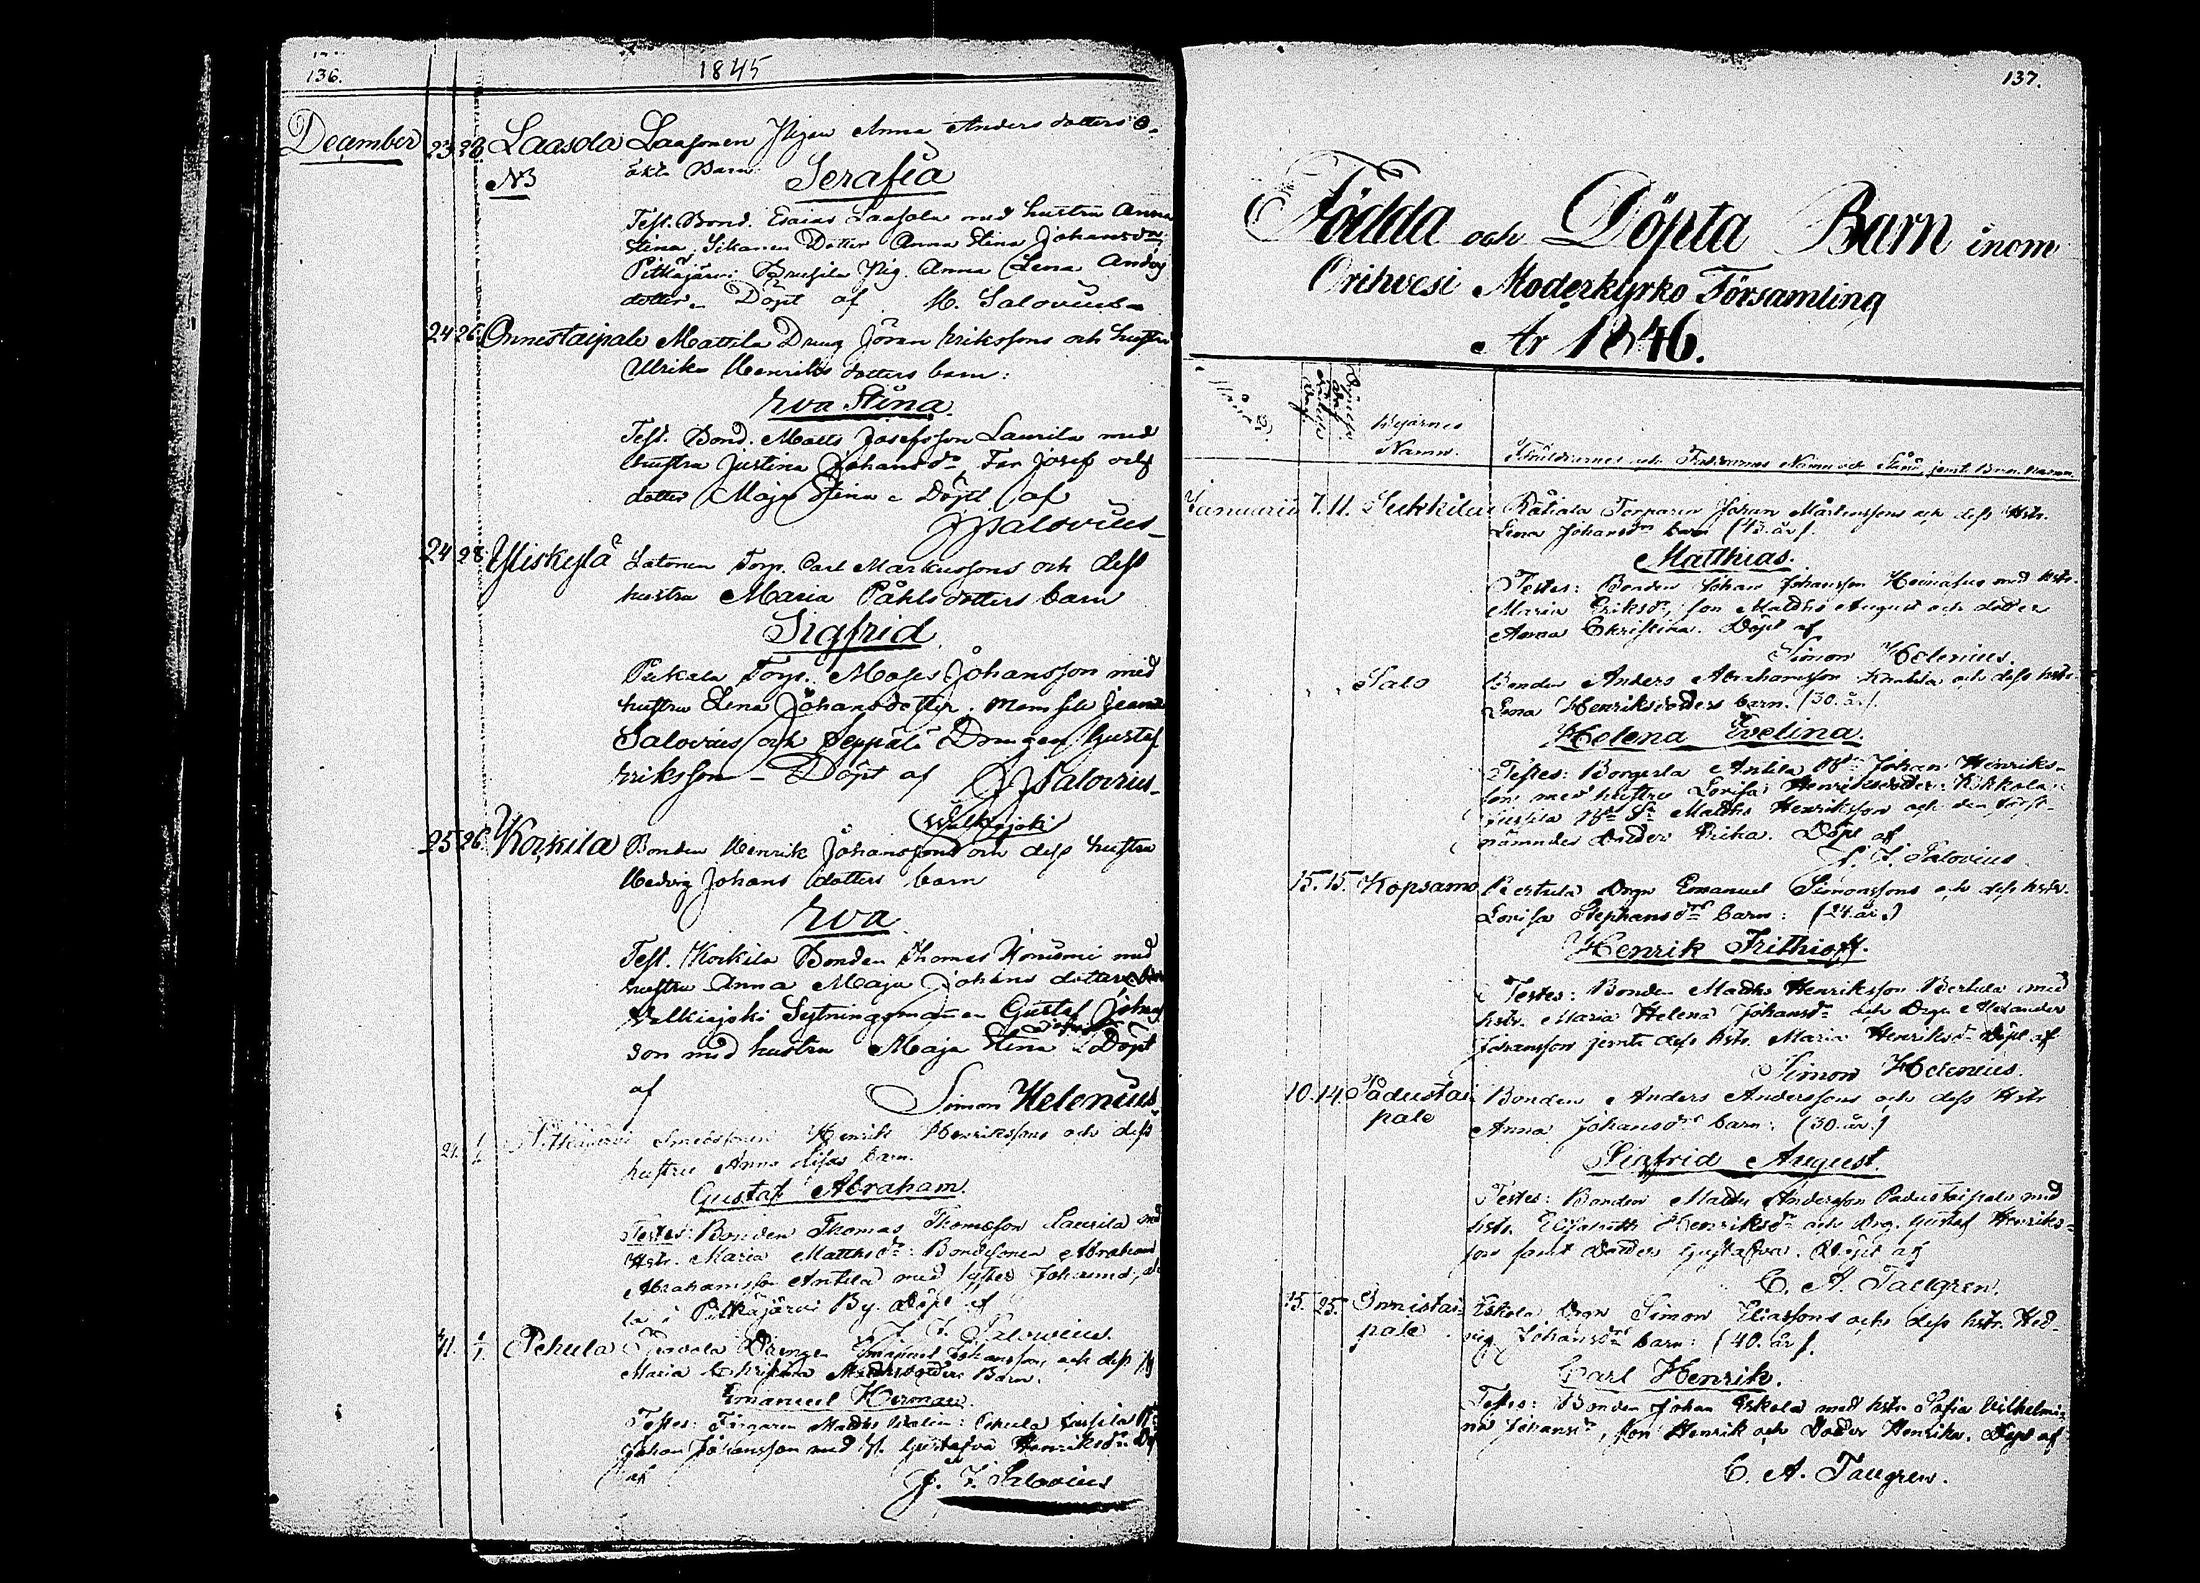 136.
1845
December 23 28 Laasola Laasonen Pigan Anna Anders dotters o-
N3 äkta Barn
Serafia
Test. Bond. Esaias Laasola med hustru Anna
Stina, Dotter Anna Stina Johansdr
Pitkäjärvi Pig. Anna Lena Anders
dotter. Döpt af M. Salovius
24 26 Onnistaipale Mattila Dreng Jöran Erikssons och hustru
Ulrika Henriks dotters barn:
Eva Stina.
Test. Bond. Matts Josefsson Laurila med
hustru Justina Johansdr, Far Josef och
dotter Maja Stina. Döpt af
J J Salovius
24 28 Yliskylä Latonen Torp. Carl Markussons och dess
hustru Maria Påhls dotters barn
Sigfrid
Pukala Torp. Moses Johansson med
hustru Lena Johansdotter. Mamsell
Salovius och Seppälä Drengen Gustaf
Eriksson - Döpt af J J Salovius
Walkiajoki
25 26 Korkila Bonden Henrik Johanssons och dess hustru
Hedvig Johans dotters barn
Eva
Test. Korkila Bonden Thomas med
hustru Anna Maja Johans dotter
Valkiajoki Sytningsmannen Gustaf Johans
son med hustru Maja Stina Döpt
af Simon Helenius
21. Pitkäjärvi Henrik Henrikssons och dess
hustru Anna Lisas barn.
Gustaf Abraham.
Testes: Bonden Thomas Thomasson Laurila med
Hstr. Maria Matthsdr: Bondesonen Abraham
Abrahamsson Antila med syster Johanna,
la i Pitkäjärvi By. Döpt af
J. J. Salovius.
Pehula Drengen Emanuel Johanssons och dess
Maria Christina Barn.
Emanuel Herman.
Testes: Matths : Pehula
Johan Johansson med H. Gustafva Henriksdr. Döpt
af
J. J. Salovius
137.
Födda och Döpta Barn inom
Orihvesi Moderkyrko Församling
År 1846.
Byarnes
Namn.
Föräldrarnes och Faddrarnes Namn och Stånd, jemt Barn. Namn
Januarii 7. 11. Sukkila Rätiala Torparen Johan Mårtenssons och dess Hstr.
Lena Johansdrs barn (43. år).
Matthias.
Testes: Bonden Johan Johansson med hstr.
Maria Eriksdr, son Matths August och dotter
Anna Christina. Döpt af
Simon Helenius.
Salo Bonden Anders Abrahamsson och dess hstr.
Lena Henriksdotters barn. (30. år).
Helena Evelina.
Testes: Antila Johan Henriks-
son med hustru Lovisa Henriksdotter: Kokkola
Matths Henriksson och den först-
nämndes dotter Erika. Döpt af
J. J. Salovius
15. 15. Kopsamo Bertula Drgn Emanuel Simonssons och dess hstr.
Lovisa Stephansdrs barn: (24. år.)
Henrik Frithioff.
Testes: Bonden Matths Henriksson Bertula med
hstr. Maria Helena Johansdr och Drgn Alexander
Johansson jemte dess hstr. Maria Henriksdr. Döpt af
Simon Helenius.
10. 14. Padustai Bonden Anders Anderssons och dess Hstr
pale Anna Johansdrs barn: (30. år.)
Sigfrid August.
Testes: Bonden Matths Andersson Padustaipale med
hstr. Elisabeth Henriksdr och Drg. Gustaf Henriks-
son samt dotter Gustafva. Döpt af
C. A. Tallgren.
15. 25. Onnistai- Eskola Drgn Simon Eliassons och dess hstr. Hed-
pale vig Johansdrs barn: (40. år).
Carl Henrik.
Testes: Bonden Johan Eskola med hstr. Sofia Vilhelmi-
na Johansdr, son Henrik och Dotter Henrika. Döpt af
C. A. Tallgren.